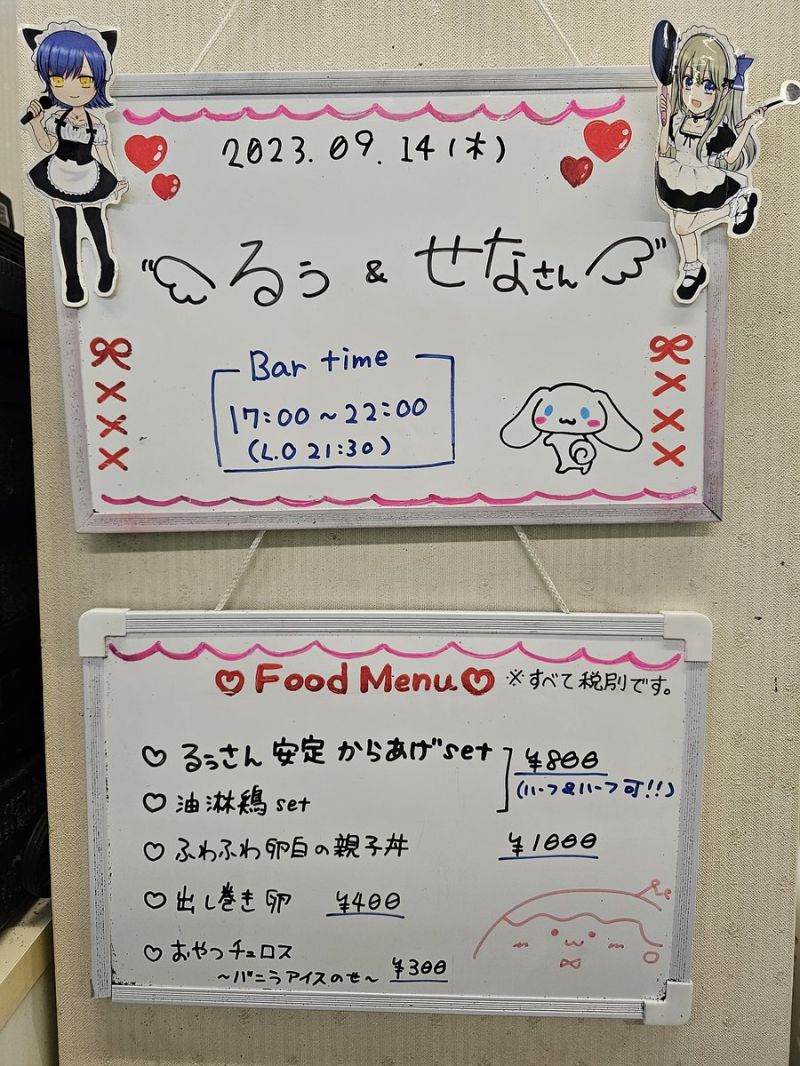 2023.09.14(木)
"るぅ & せなさん"
Bar time
17:00～22:00
(L.O 21:30)
Food Menu ※すべて税別です。
るぅさん 安定 からあげ set ¥800
(ハーフ&ハーフ可!!)
油淋鶏 set
ふわふわ卵白の親子丼 ¥1000
出し巻き卵 ¥400
おやつチュロス
～バニラアイスのせ～ ¥300